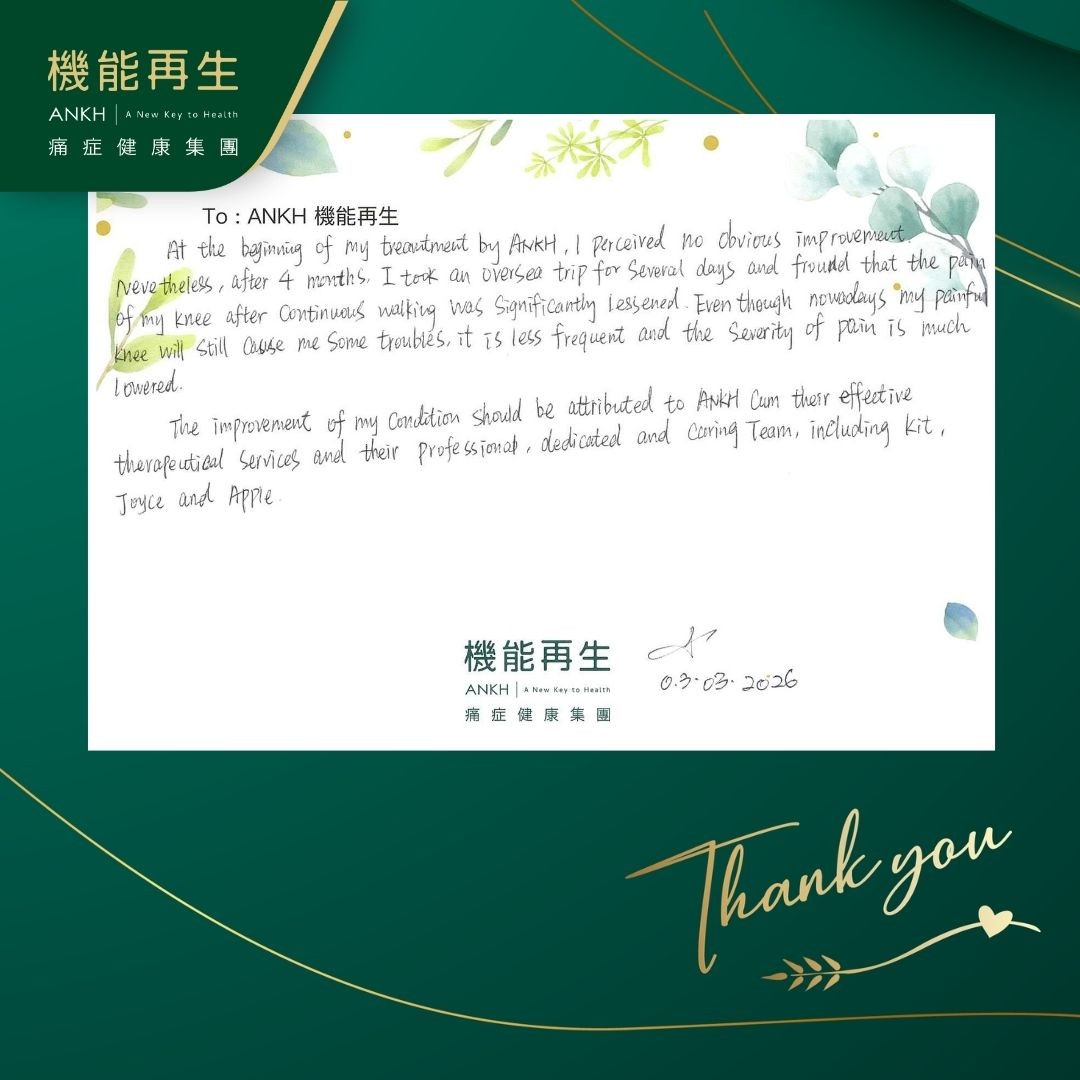 機能再生
ANKH | A New Key to Health
痛症健康集團
To : ANKH 機能再生
At the beginning of my treantment by ANKH, I perceived no obvious improvement.
Nevetheless, after 4 months, I took an oversea trip for several days and fround that the pain
of my knee after continuous walking was significantly lessened. Even though nowadays my painful
knee will still cause me some troubles, it is less frequent and the severity of pain is much
lowered.
The improvement of my condition should be attributed to ANKH cum their effective
therapeutical services and their professional, dedicated and caring Team, including Kit,
Joyce and Apple.
機能再生
ANKH | A New Key to Health
痛症健康集團
03.03.2026
Thank you